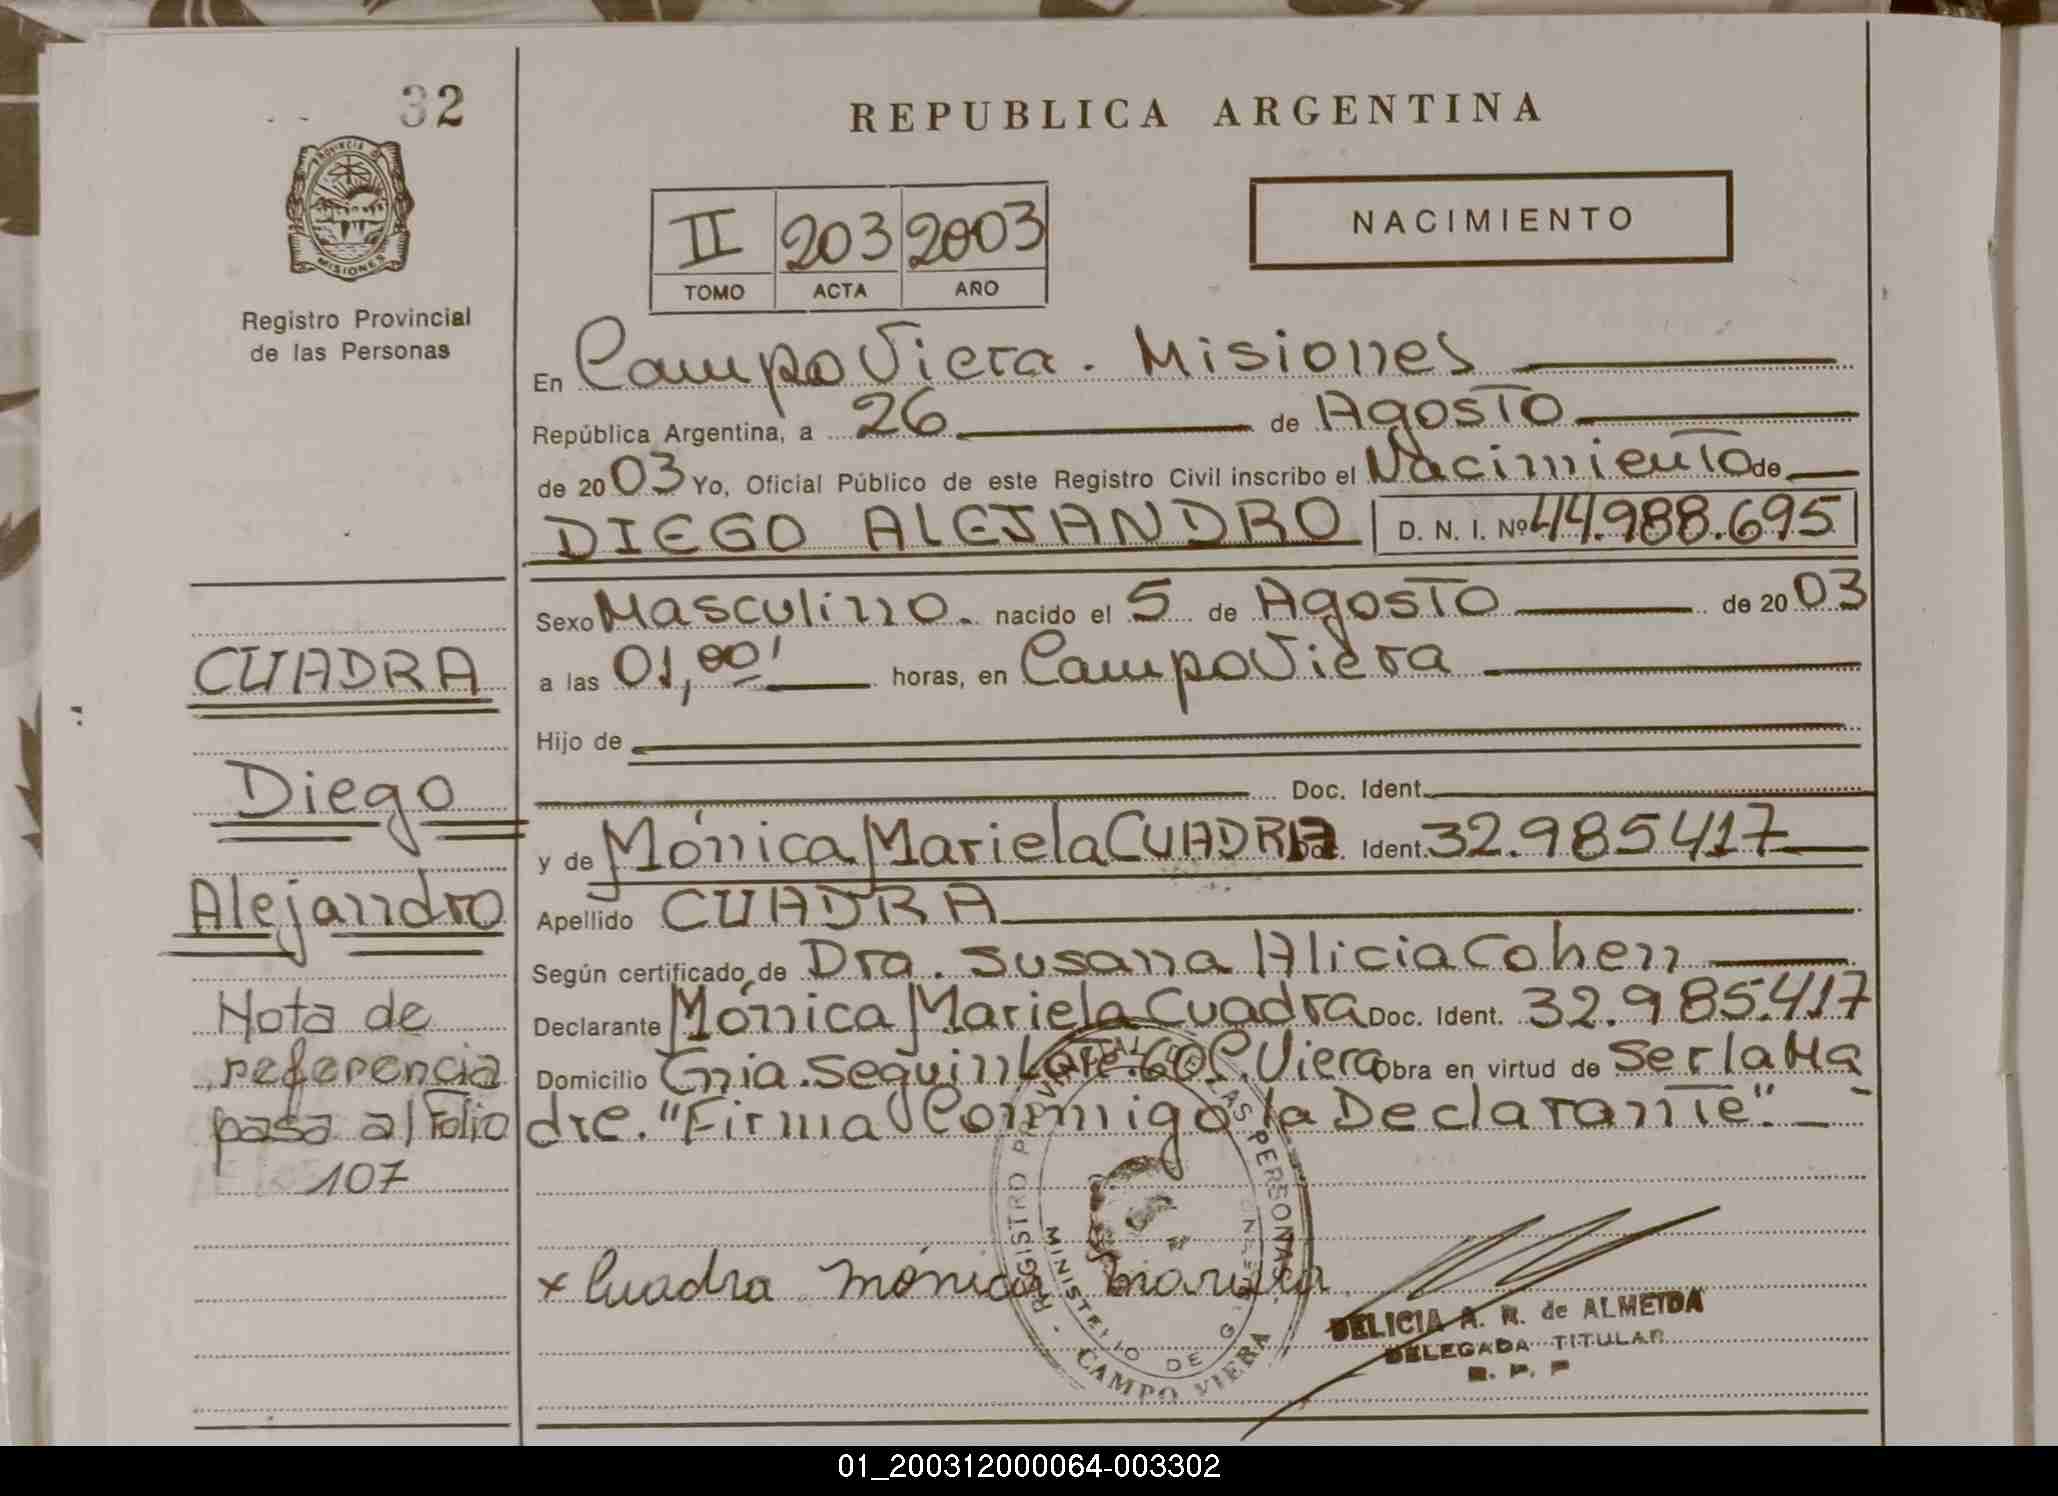 32
PROVINCIA DE
MISIONES
Registro Provincial
de las Personas
CUADRA
Diego
Alejandro
Nota de
referencia
pasa al Folio
107
REPUBLICA ARGENTINA
II 203 2003
TOMO ACTA AÑO
NACIMIENTO
En Campo Viera. Misiones
República Argentina, a 26 de Agosto
de 2003 Yo, Oficial Público de este Registro Civil inscribo el Nacimiento de
DIEGO ALEJANDRO D. N. I. Nº 44.988.695
Sexo Masculino. nacido el 5 de Agosto de 2003
a las 01,00' horas, en Campo Viera
Hijo de
Doc. Ident.
y de Mónica Mariela CUADRA Doc. Ident. 32.985417
Apellido CUADRA
Según certificado de Dra. Susana Alicia Cohen
Declarante Mónica Mariela Cuadra Doc. Ident. 32.985.417
Domicilio Cnia. Seguin Lote. 60 C. Viera Obra en virtud de Ser la Ma
dre. "Firma Conmigo la Declarante".
REGISTRO PROVINCIAL DE LAS PERSONAS
MINISTERIO DE G
CAMPO VIERA
x Cuadra Mónica Mariela
DELICIA A. R. de ALMEIDA
DELEGADA TITULAR
R. P. P
01_200312000064-003302